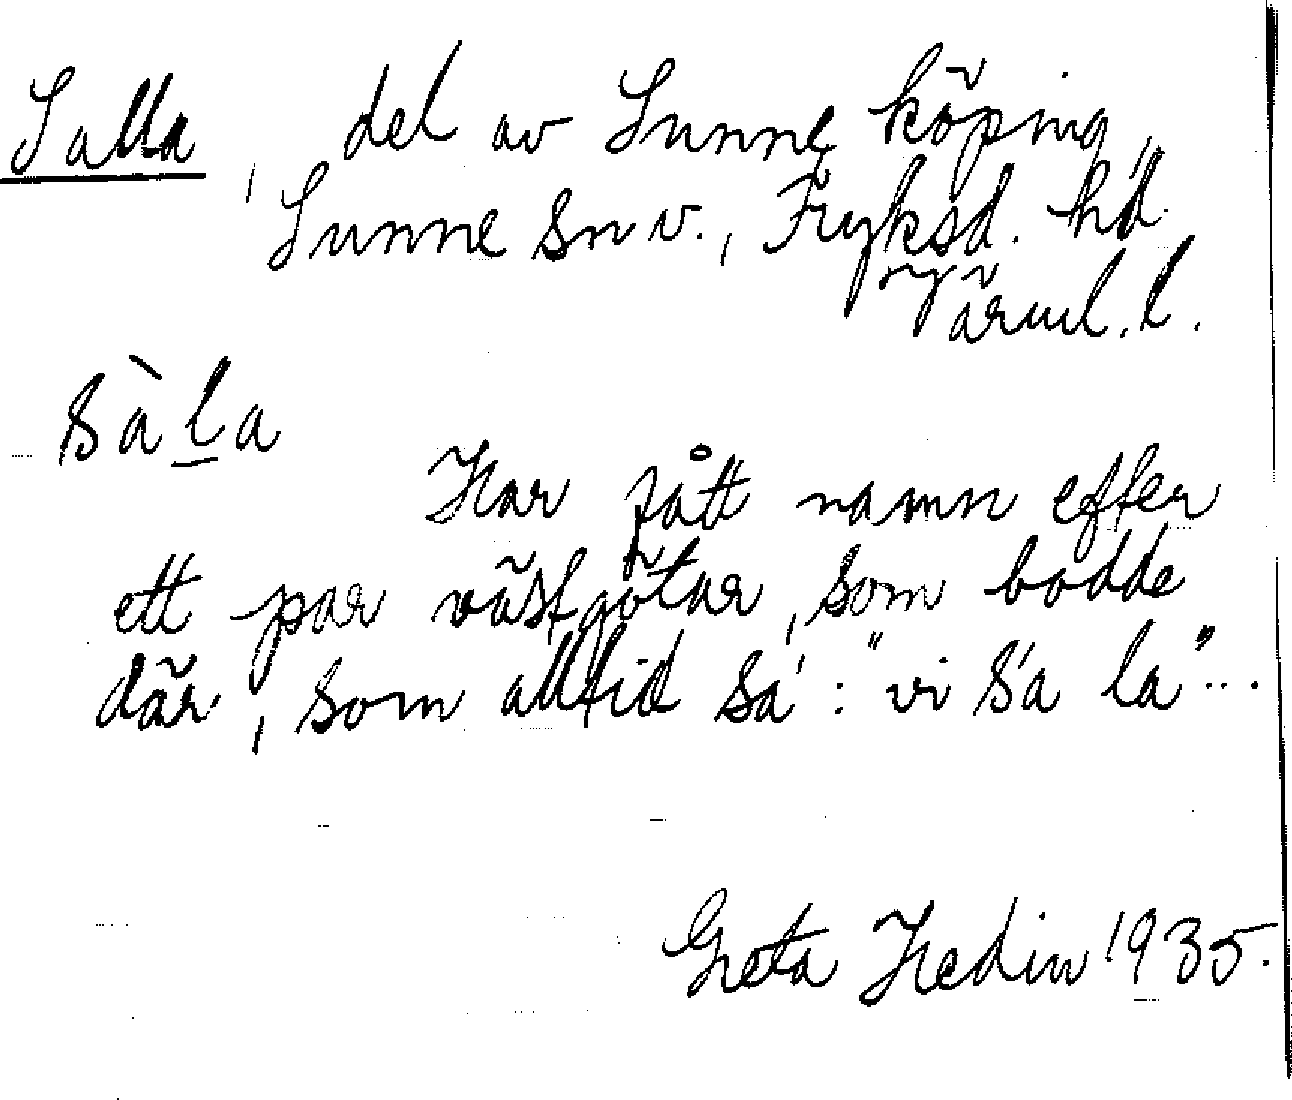 Salla, del av Sunne köping,
Sunne sn v., Fryksd. hd.
Värml. l.
sàl̲a
Har fått namn efter
ett par västgötar, som bodde
där, som alltid sa': "vi s'a la"...
Greta Hedin 1935.